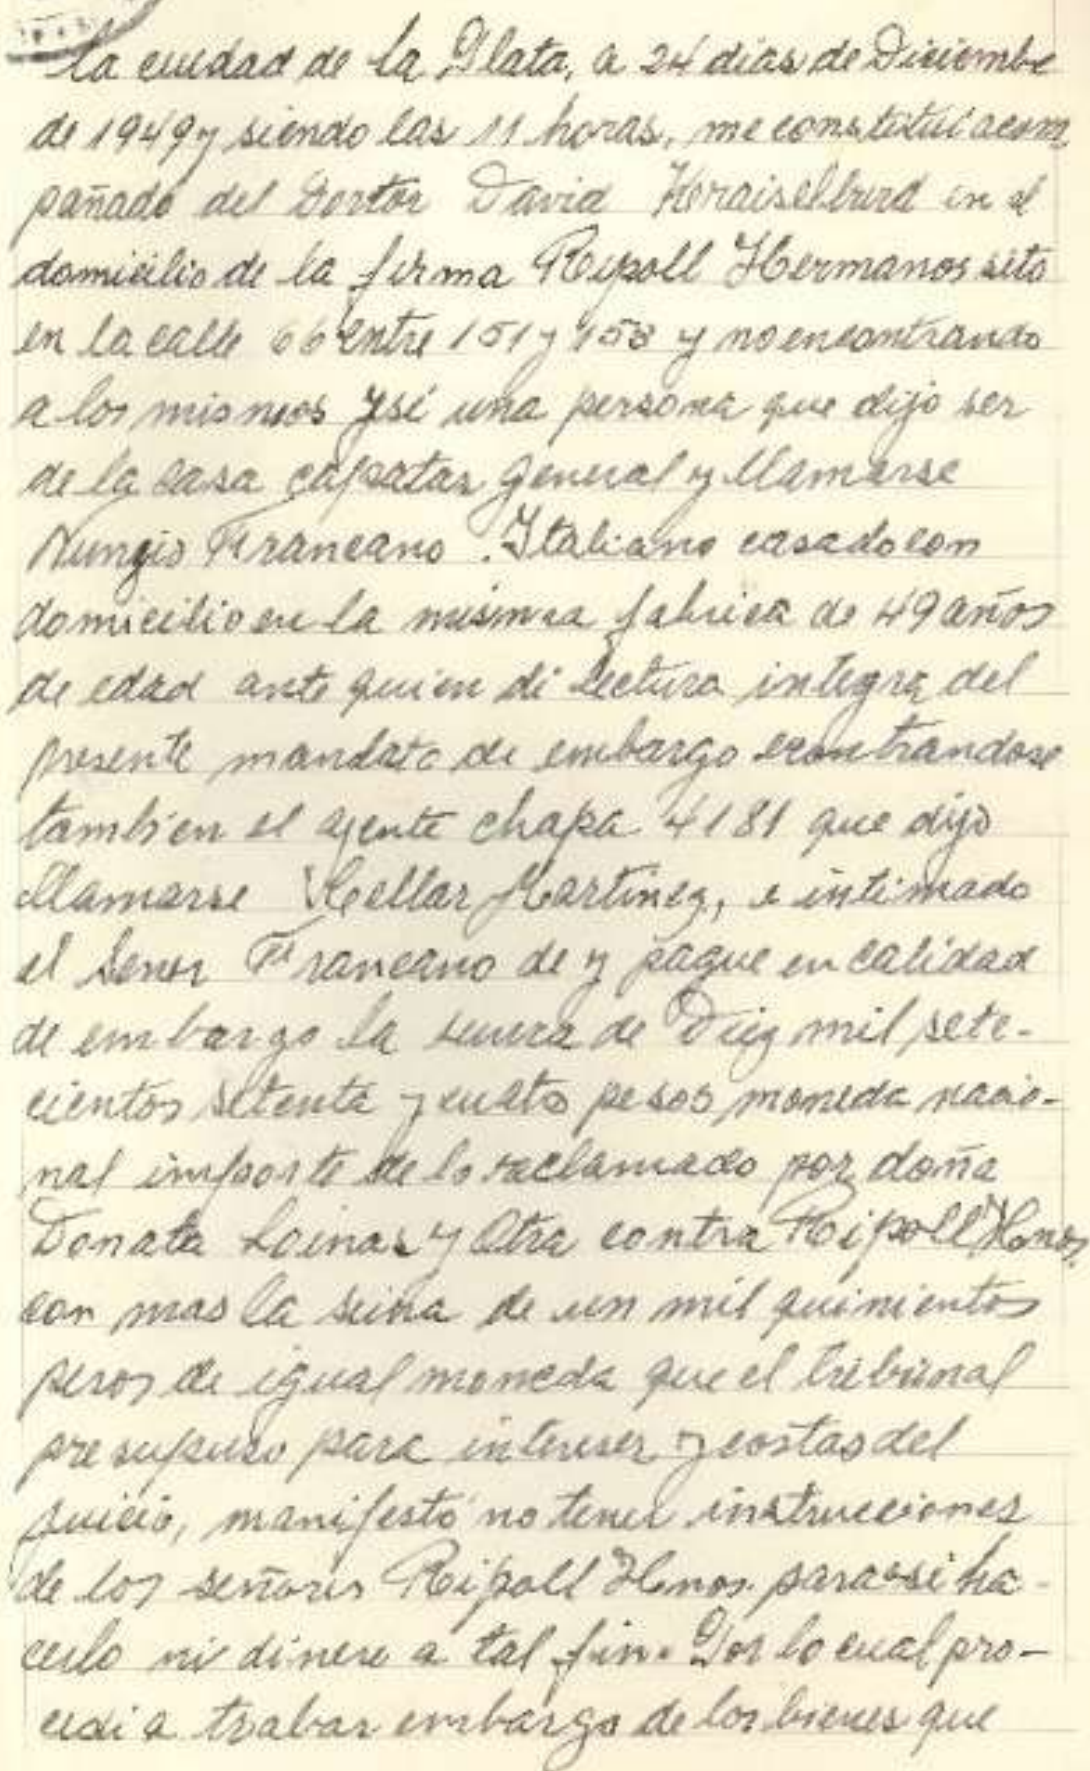 la ciudad de la Plata, a 24 dias de Diciembe
de 1949 y siendo las 11 horas, me constitui acom
pañado del Doctor David Kraiselburd en el
domicilio de la firma Ripoll Hermanos sito
en la calle 66 entre 151 y 153 y no encontrando
a los mismos y si una persona que dijo ser
de la casa capataz general y llamarse
Nunzio Francano. Italiano casado con
domicilio en la misma fabrica de 49 años
de edad ante quien di lectura integra del
presente mandato de embargo econtrandose
tambien el agente chapa 4181 que dijo
llamarse Martinez, e intimado
el Senor Francano de y pague en calidad
de embargo la suma de Diez mil sete-
cientos setenta y cuato pesos moneda nacio-
nal importe de lo reclamado por doña
Donata y Otra contra Ripoll Hnos.
con mas la suma de un mil quinientos
pesos de igual moneda que el tribunal
presupuso para intereses y costas del
juicio, manifestó no tener instrucciones
de los señores Ripoll Hnos. para asi ha-
cerlo ni dinero a tal fin. Por lo cual pro-
cedi a trabar embargo de los bienes que